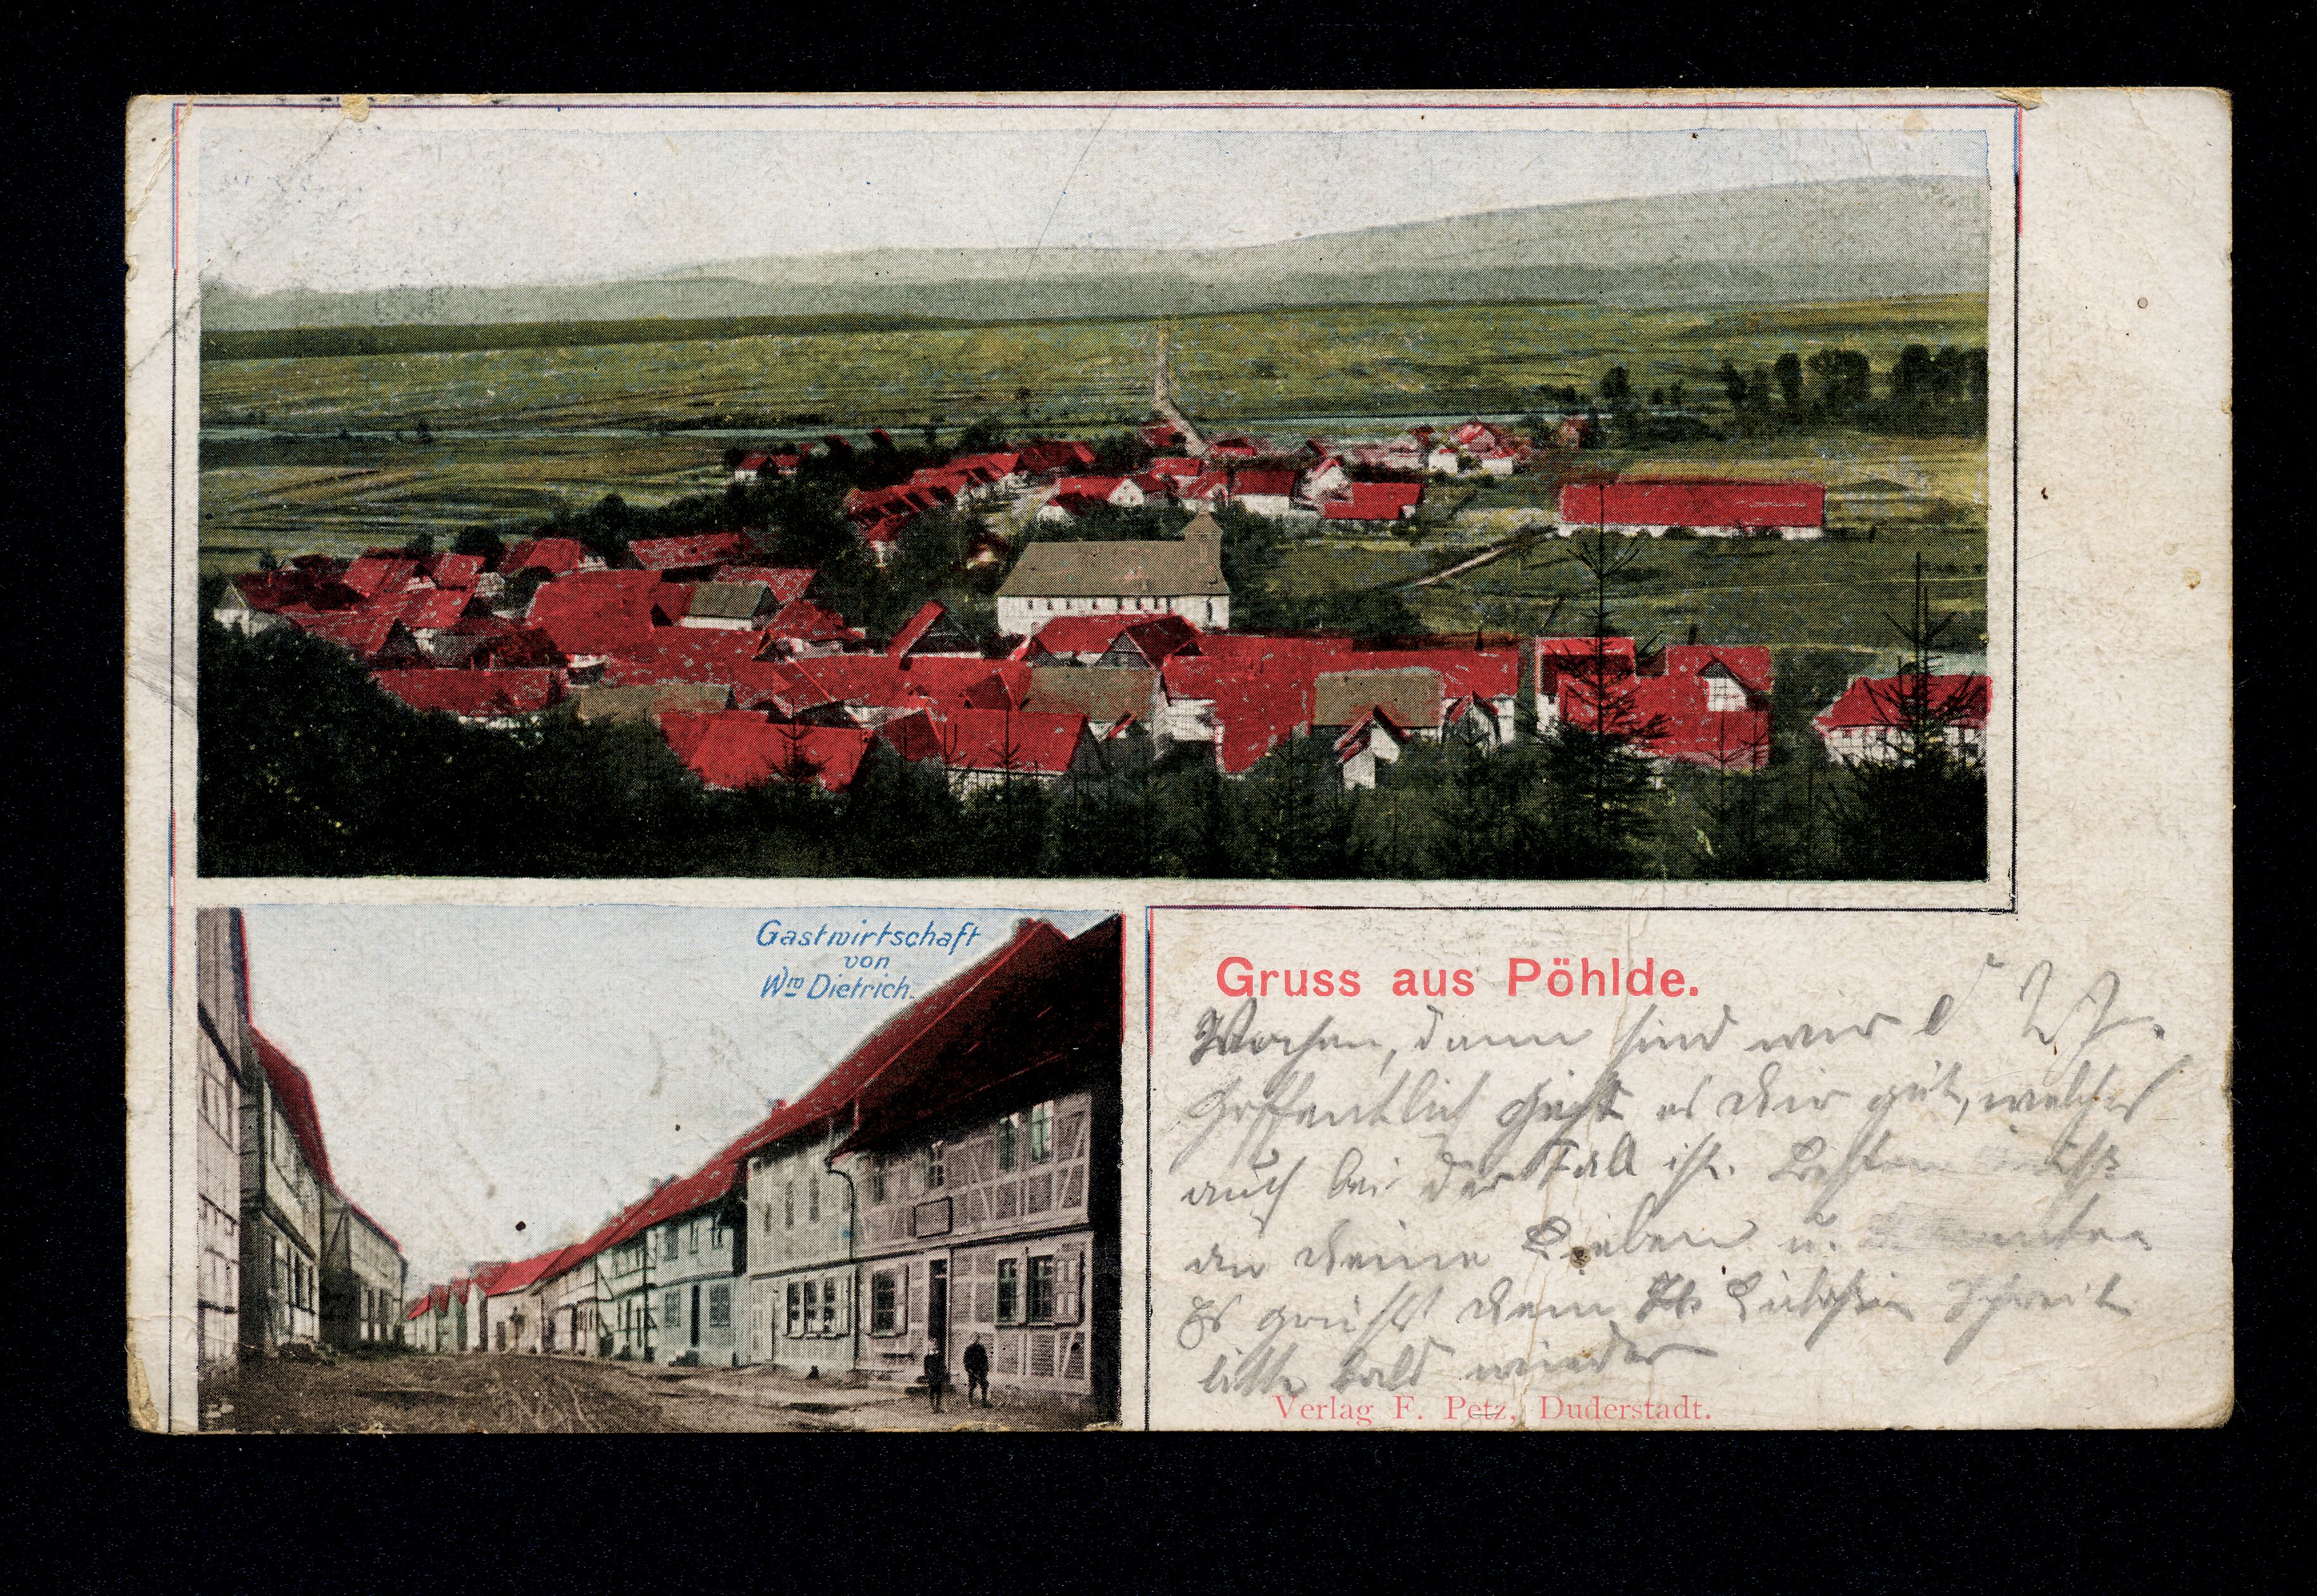 Gastwirtschaft
von
Wm Dietrich.
Gruss aus Pöhlde.
Wochen, dann sind wir
Hoffentlich geht es Dir gut, welches
auch bei der Fall ist. Besten
an Deine Lieben u.
Es grüßt Dein Schreib
bitte bald wieder
Verlag F. Petz, Duderstadt.